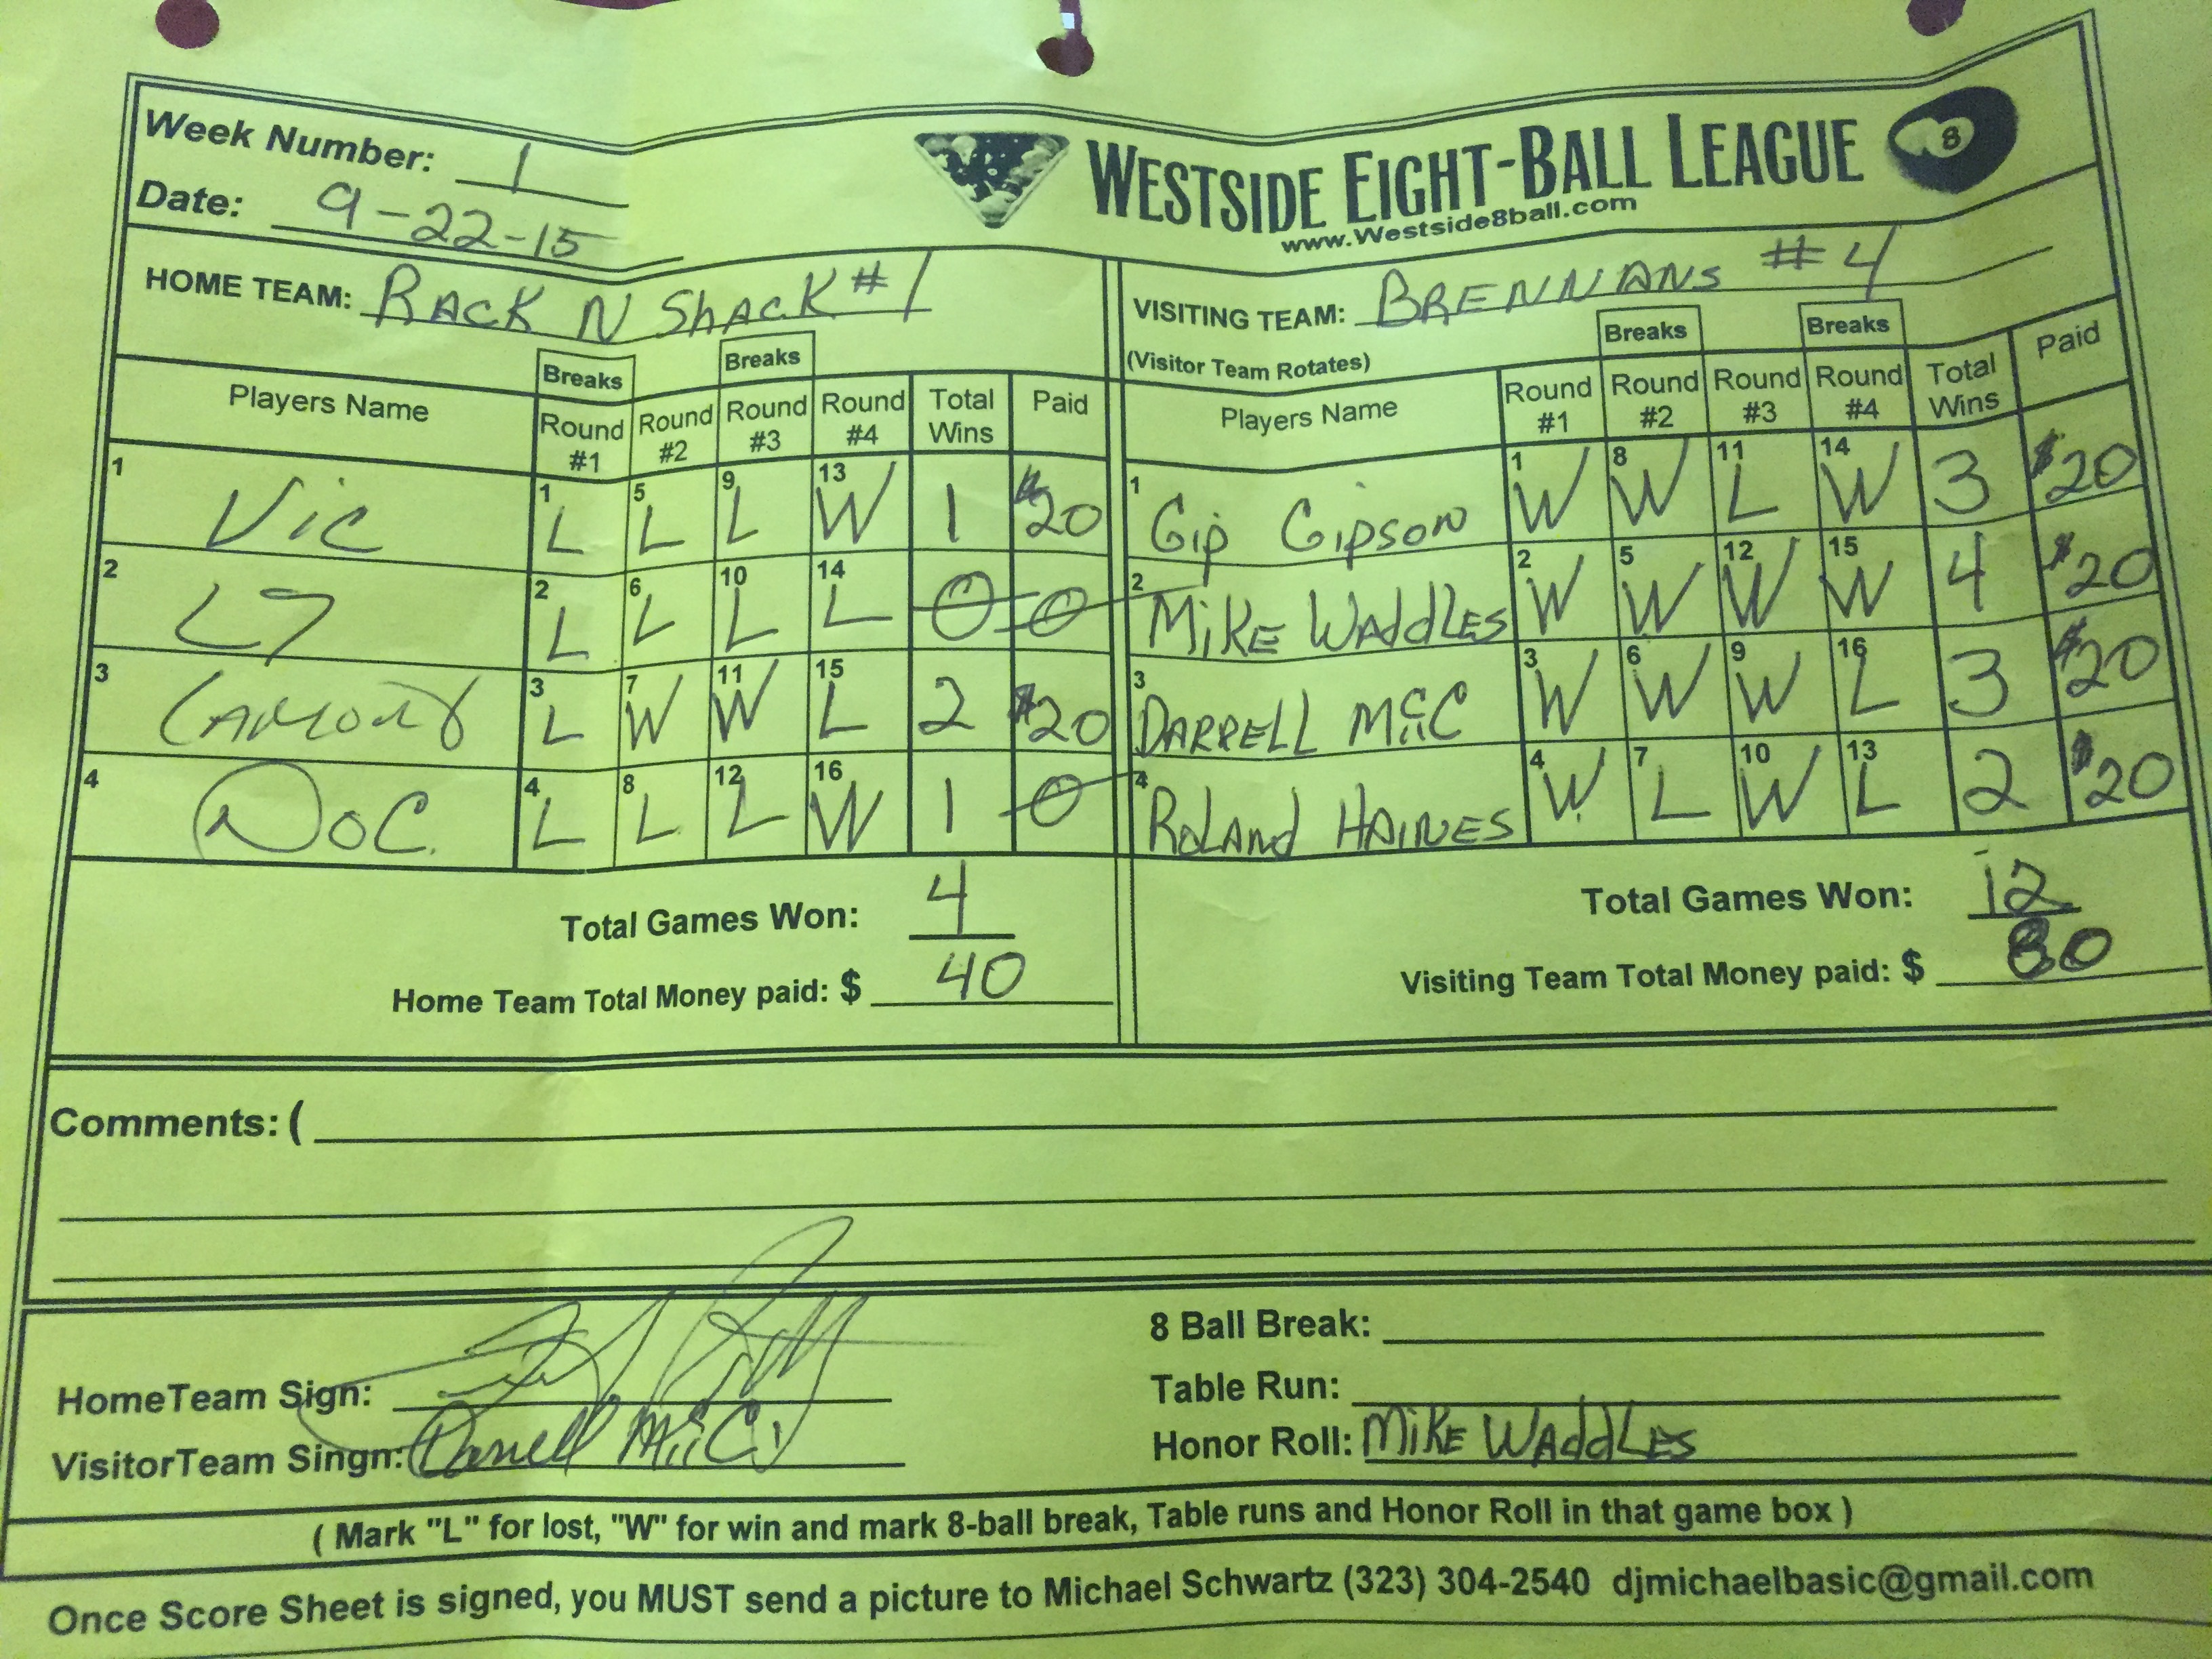 Week Number: 1
Date: 9-22-15
WESTSIDE EIGHT-BALL LEAGUE
8
www.Westside8ball.com
HOME TEAM: RACK N SHACK #1
Breaks Breaks
Players Name Round #1 Round #2 Round #3 Round #4 Total Wins Paid
1 Vic 1 L 5 L 9 L 13 W 1 $20
2 2 L 6 L 10 L 14 L 0 0
3 3 L 7 W 11 W 15 L 2 $20
4 DOC. 4 L 8 L 12 L 16 W 1 0
Total Games Won: 4
Home Team Total Money paid: $ 40
VISITING TEAM: BRENNANS #4
(Visitor Team Rotates)
Breaks Breaks
Players Name Round #1 Round #2 Round #3 Round #4 Total Wins Paid
1 Gip Gipson 1 W 8 W 11 L 14 W 3 $20
2 MIKE WADDLES 2 W 5 W 12 W 15 W 4 $20
3 DARRELL MiiC 3 W 6 W 9 W 16 L 3 $20
4 ROLAND HAINES 4 W 7 L 10 W 13 L 2 $20
Total Games Won: 12
Visiting Team Total Money paid: $ 80
Comments: (
HomeTeam Sign:
VisitorTeam Singn: Darrell MiiC
8 Ball Break:
Table Run:
Honor Roll: MIKE WADDLES
( Mark "L" for lost, "W" for win and mark 8-ball break, Table runs and Honor Roll in that game box )
Once Score Sheet is signed, you MUST send a picture to Michael Schwartz (323) 304-2540 djmichaelbasic@gmail.com